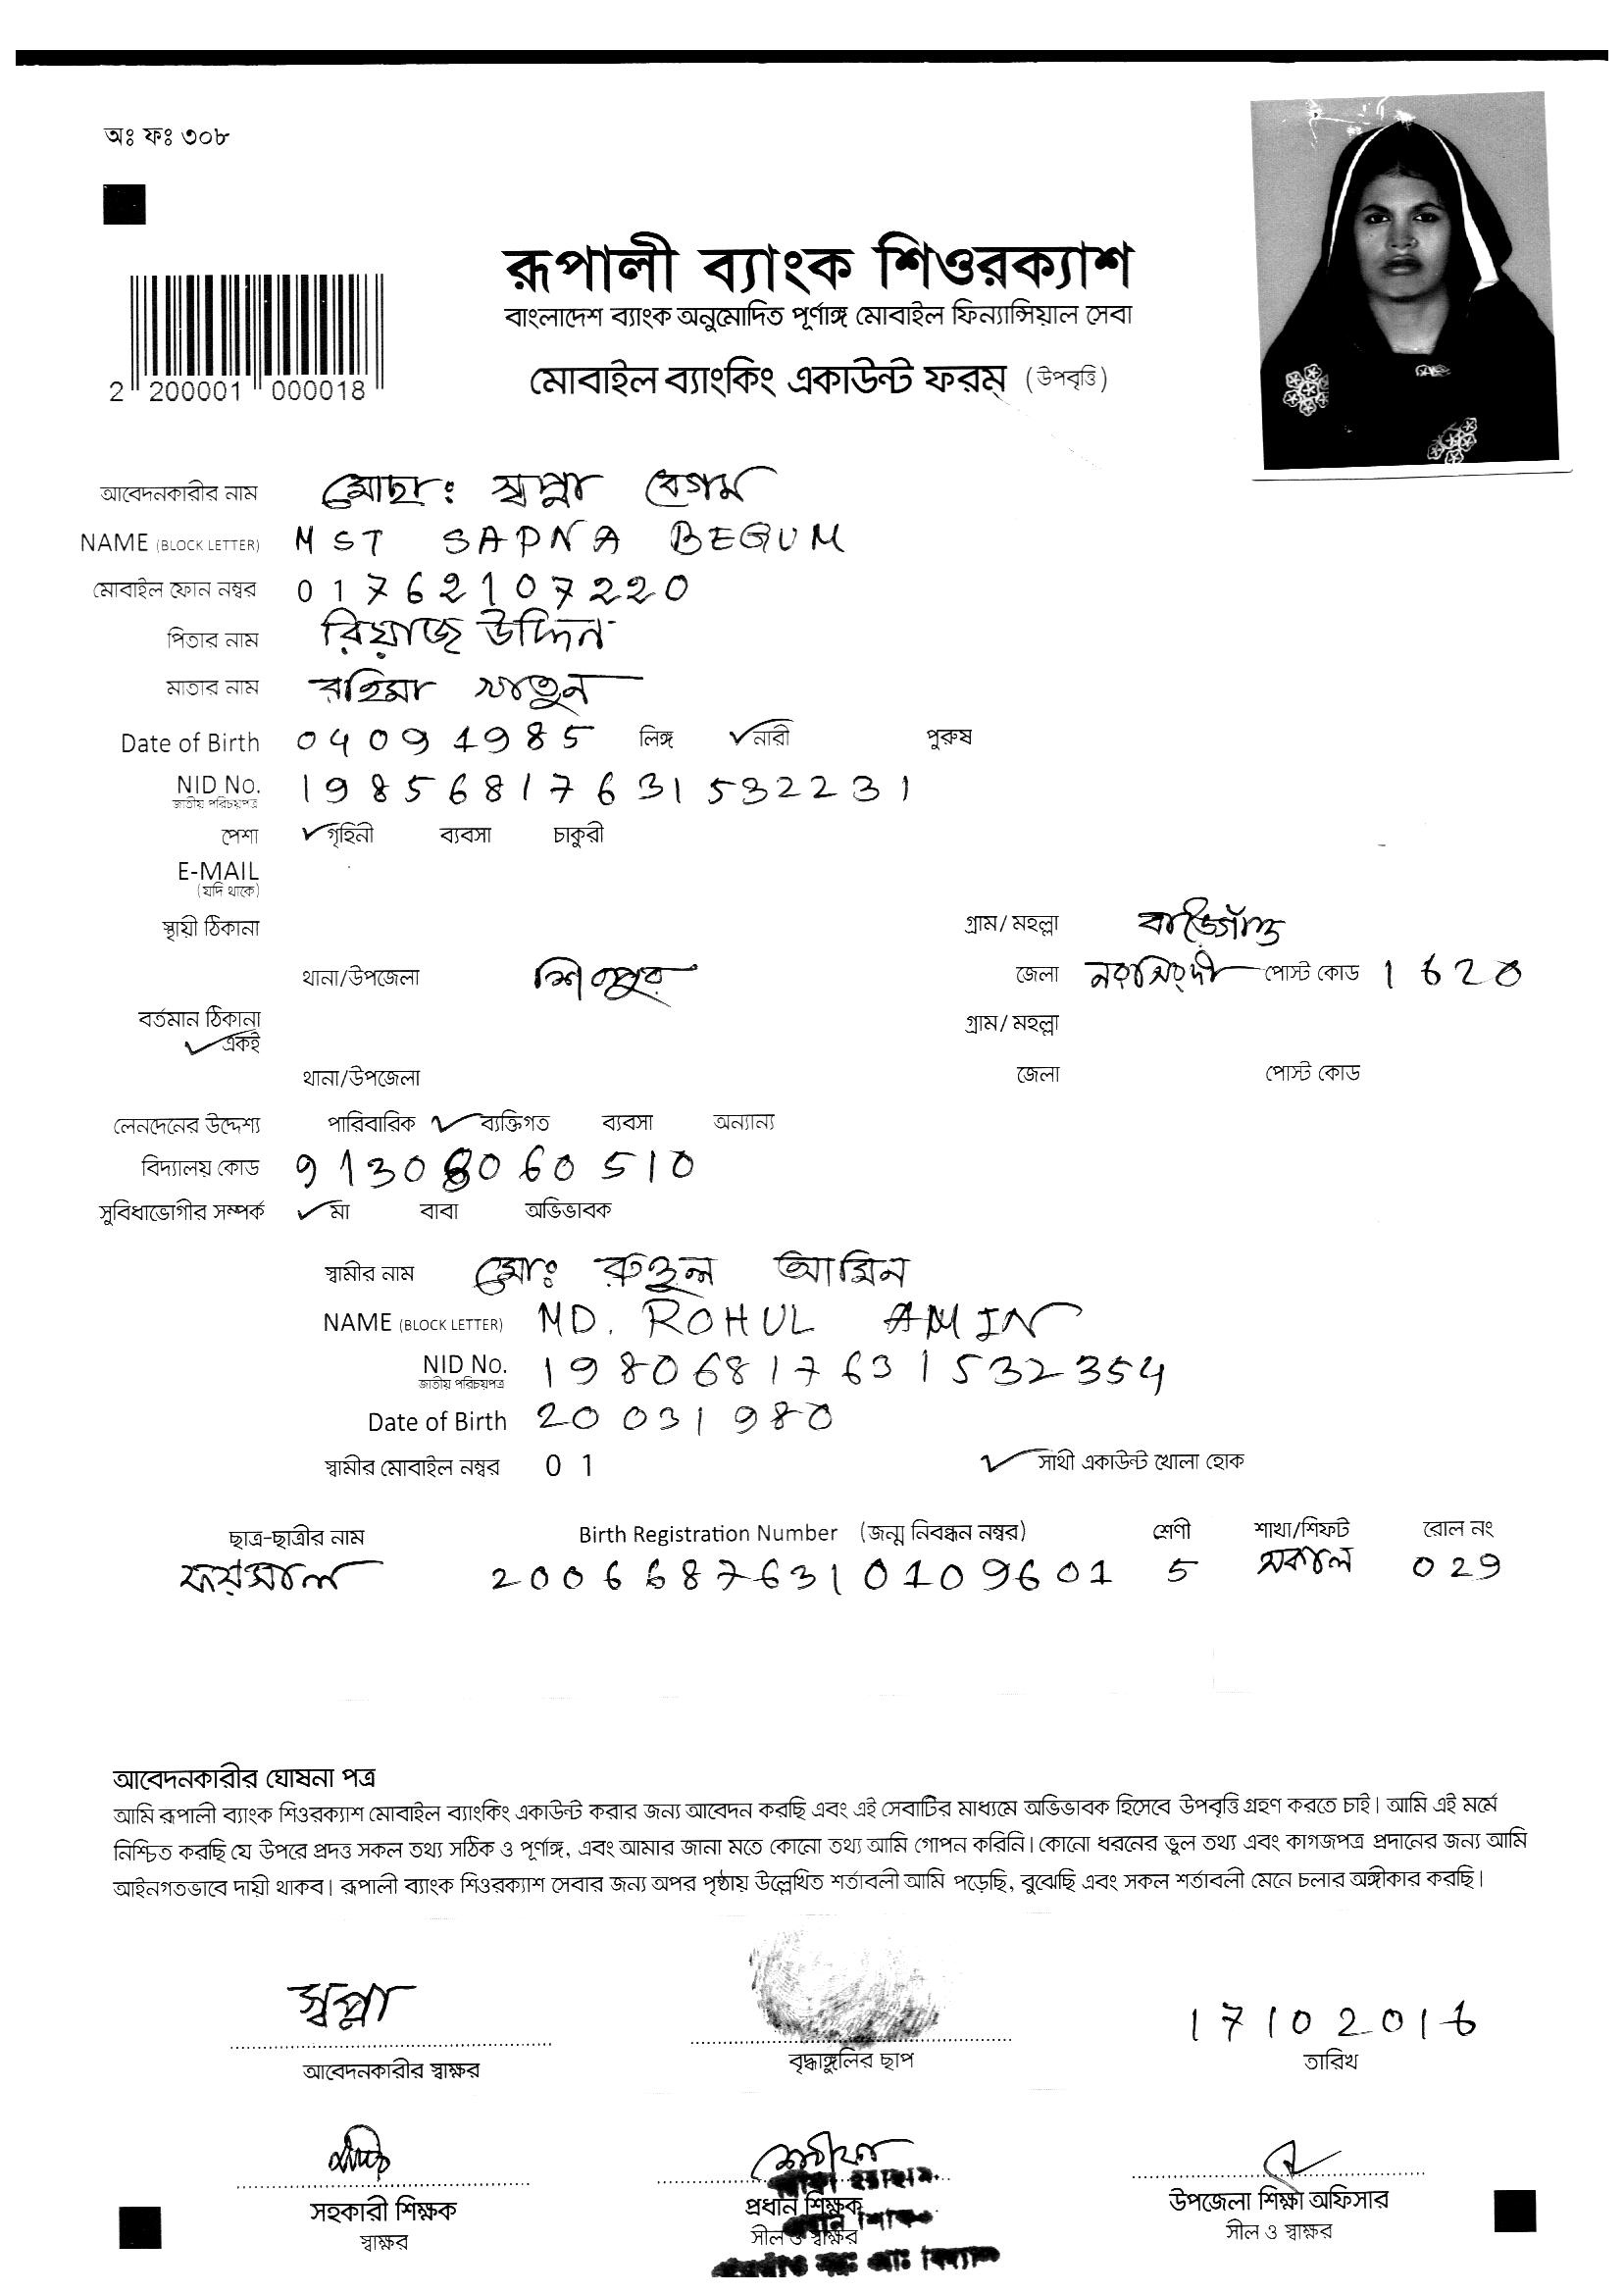 অঃ ফঃ ৩০৮
রূপালী ব্যাংক শিওরক্যাশ
বাংলাদেশ ব্যাংক অনুমোদিত পূর্ণাঙ্গ মোবাইল ফিন্যান্সিয়াল সেবা
মোবাইল ব্যাংকিং একাউন্ট ফরম্ (উপবৃত্তি)
2 200001 000018
আবেদনকারীর নাম মোছা: স্বপ্না বেগম
NAME (BLOCK LETTER) MST SAPNA BEGUM
মোবাইল ফোন নম্বর 01762107220
পিতার নাম রিয়াজ উদ্দিন
মাতার নাম রহিমা খাতুন
Date of Birth 04091985 লিঙ্গ নারী পুরুষ
NID No. 19856817631532231
জাতীয় পরিচয়পত্র
পেশা গৃহিনী ব্যবসা চাকুরী
E-MAIL
(যদি থাকে)
স্থায়ী ঠিকানা গ্রাম/ মহল্লা
থানা/উপজেলা শিবপুর জেলা নরসিংদী পোস্ট কোড 1620
বর্তমান ঠিকানা গ্রাম/ মহল্লা
একই
থানা/উপজেলা জেলা পোস্ট কোড
লেনদেনের উদ্দেশ্য পারিবারিক ব্যক্তিগত ব্যবসা অন্যান্য
বিদ্যালয় কোড 91308060510
সুবিধাভোগীর সম্পর্ক মা বাবা অভিভাবক
স্বামীর নাম মোঃ রুহুল আমিন
NAME (BLOCK LETTER) MD. ROHUL AMIN
NID No. 19806817631532354
জাতীয় পরিচয়পত্র
Date of Birth 20031980
স্বামীর মোবাইল নম্বর 01 সাথী একাউন্ট খোলা হোক
ছাত্র-ছাত্রীর নাম Birth Registration Number (জন্ম নিবন্ধন নম্বর) শ্রেণী শাখা/শিফট রোল নং
ফয়সাল 20066876310109601 5 সকাল 029
আবেদনকারীর ঘোষনা পত্র
আমি রূপালী ব্যাংক শিওরক্যাশ মোবাইল ব্যাংকিং একাউন্ট করার জন্য আবেদন করছি এবং এই সেবাটির মাধ্যমে অভিভাবক হিসেবে উপবৃত্তি গ্রহণ করতে চাই। আমি এই মর্মে
নিশ্চিত করছি যে উপরে প্রদত্ত সকল তথ্য সঠিক ও পূর্ণাঙ্গ, এবং আমার জানা মতে কোনো তথ্য আমি গোপন করিনি। কোনো ধরনের ভুল তথ্য এবং কাগজপত্র প্রদানের জন্য আমি
আইনগতভাবে দায়ী থাকব। রূপালী ব্যাংক শিওরক্যাশ সেবার জন্য অপর পৃষ্ঠায় উল্লেখিত শর্তাবলী আমি পড়েছি, বুঝেছি এবং সকল শর্তাবলী মেনে চলার অঙ্গীকার করছি।
স্বপ্না 17102016
আবেদনকারীর স্বাক্ষর বৃদ্ধাঙ্গুলির ছাপ তারিখ
সহকারী শিক্ষক প্রধান শিক্ষক উপজেলা শিক্ষা অফিসার
স্বাক্ষর সীল ও স্বাক্ষর সীল ও স্বাক্ষর